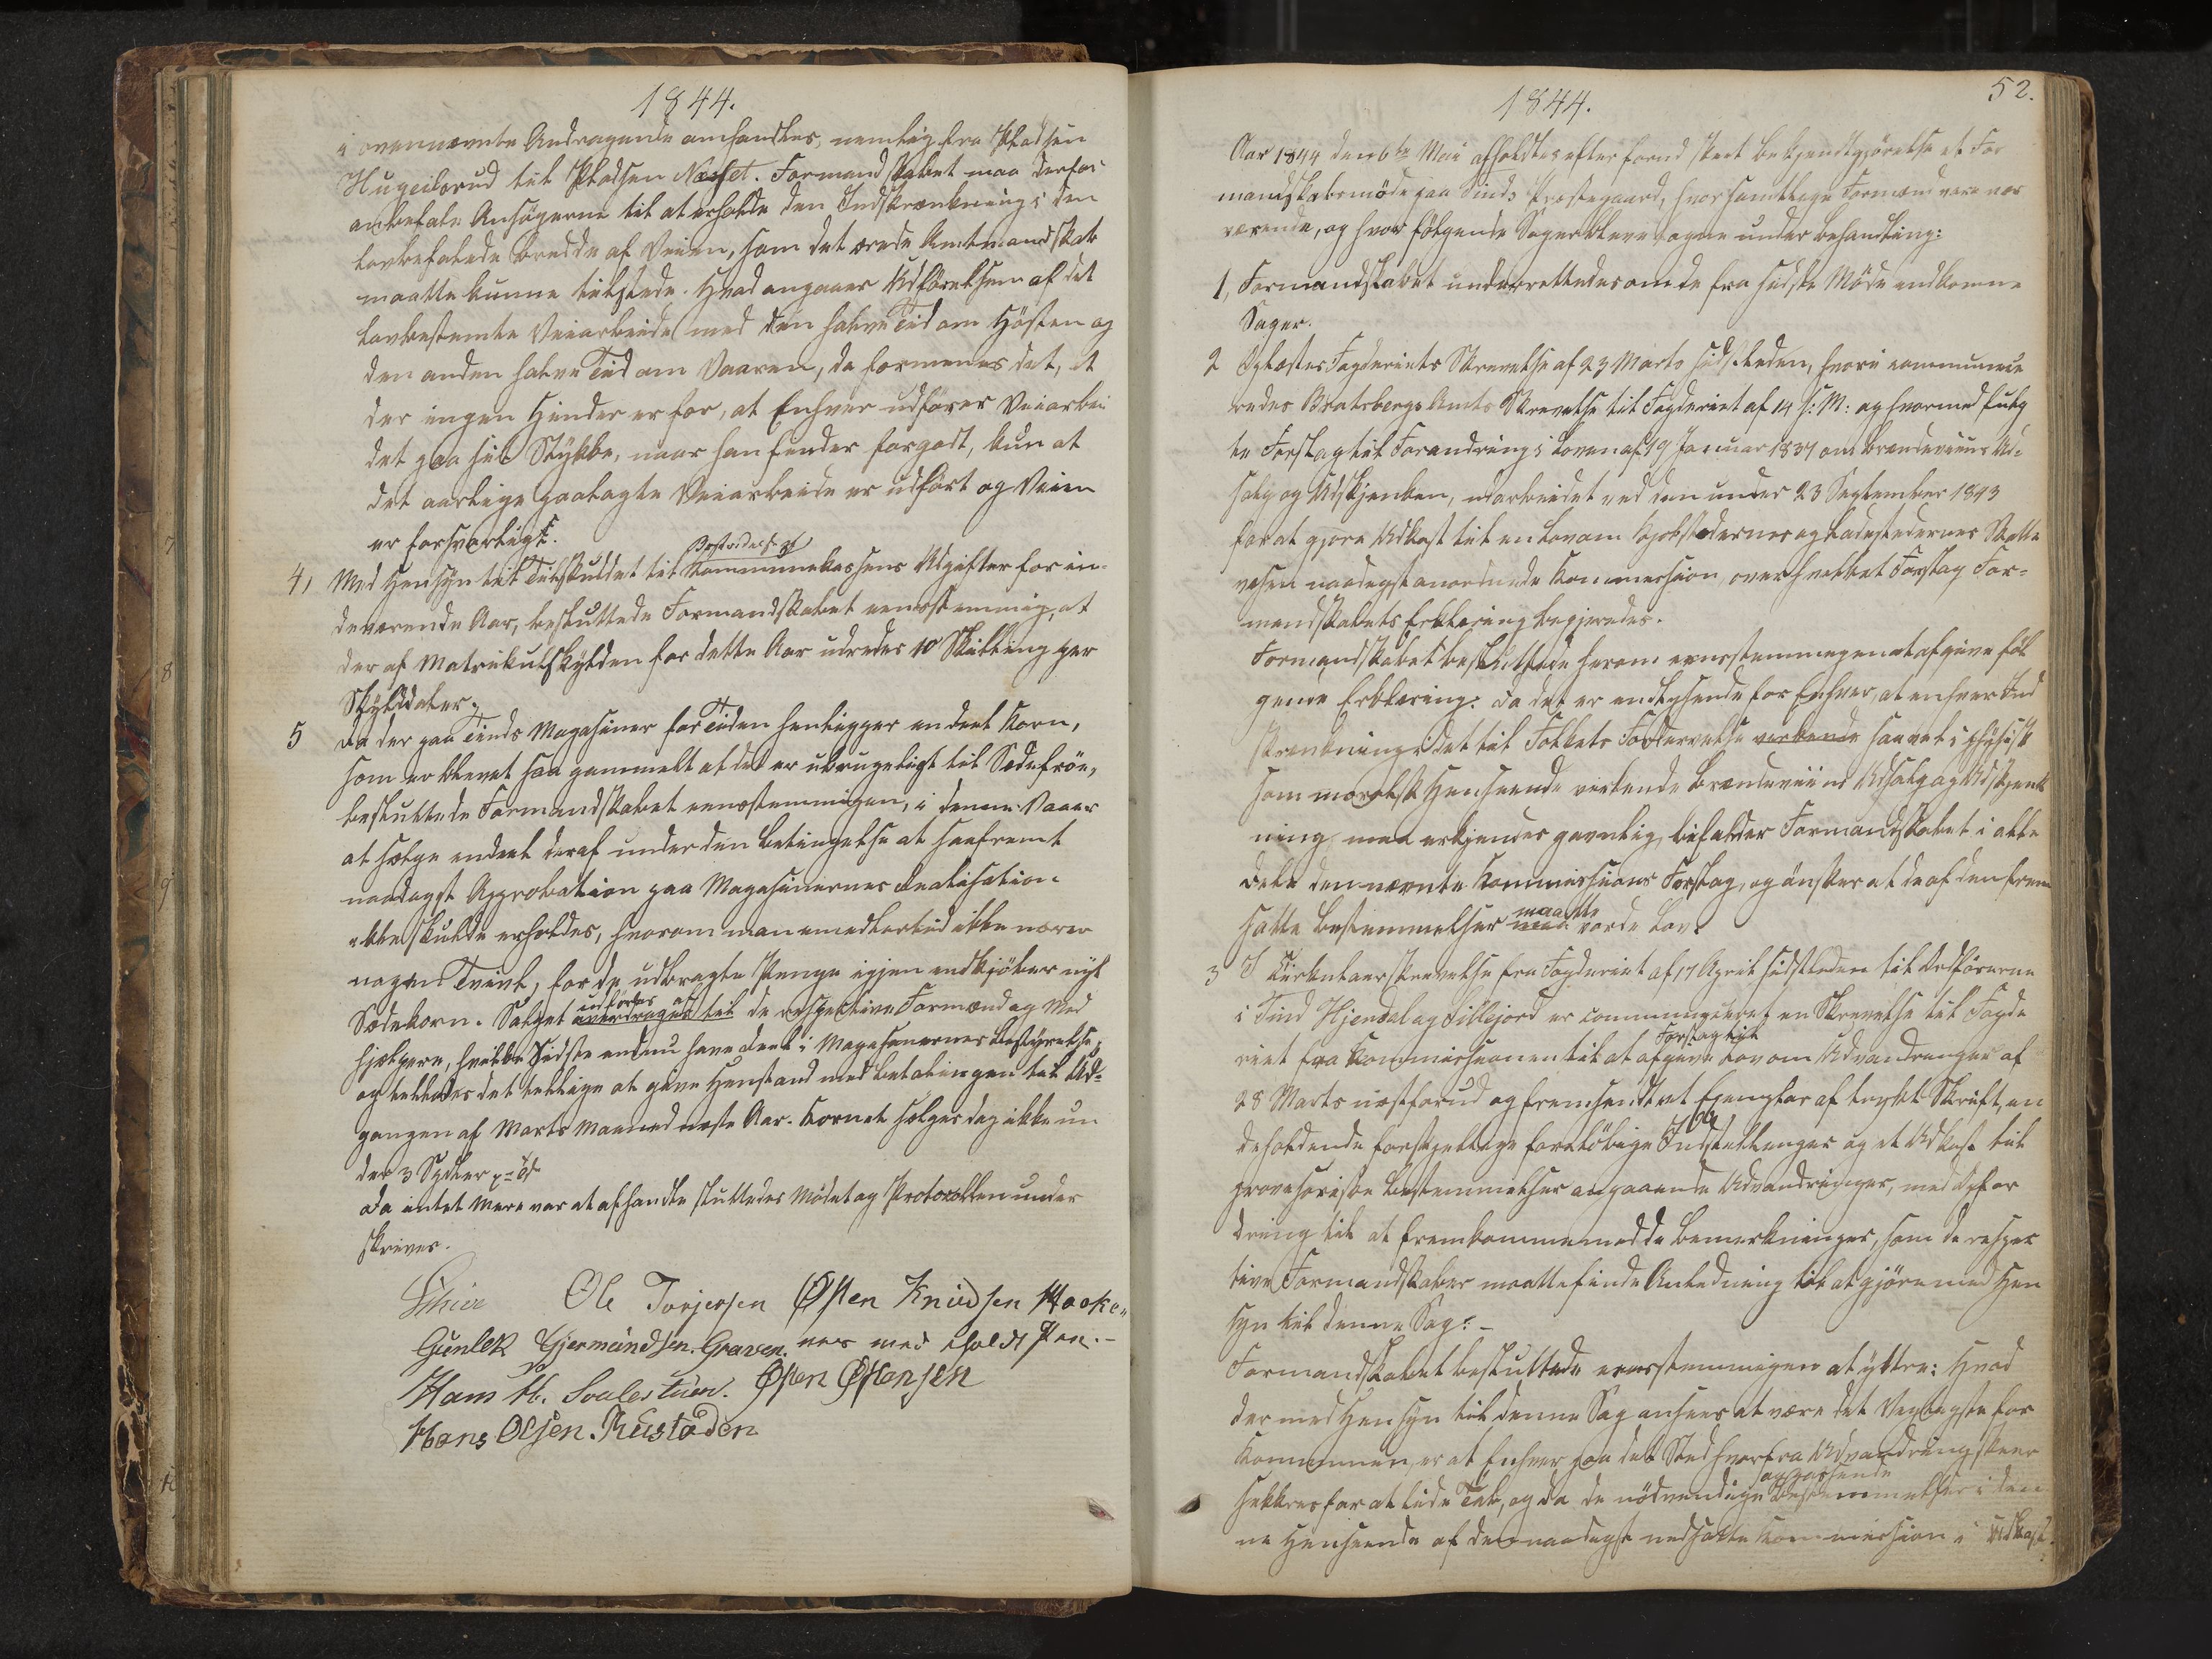 1844.
i ovennævnte Andragende omhandles, nemlig fra Pladsen
Hugeilsrud til Pladsen Næsset. Formandskabet maa derfor
anbefale Ansøgerne til at erholde den Indskrænkning i den
lovbefalede Bredde af Veien, som det ærede Amtmandskab
maatte kunne tilstede. Hvad angaaer Udførelsen af det
lovbestemte Veiarbeide med den halve Tid om Høsten og
den anden halve Tid om Vaaren, da formenes det, at
der ingen Hinder er for, at Enhver udfører Veiarbei
det paa sit Stykke, naar han finder for godt, kun at
det aarlige paalagte Veiarbeide er udført og Veien
er forsvarligt.
Bestridelse af
4, Med Hensyn til Tilskuddet til Kommunekassens Udgifter for in-
deværende Aar, besluttede Formandskabet eensstemmig, at
der af Matrikulskylden for dette Aar udredes 10 Skilling per
Skylddaler.
5 Da der paa Tinds Magasiner for Tiden henligger en deel Korn,
som er blevet saa gammelt at det er ubrugeligt til Sædefrøe,
besluttede Formandskabet eensstemmigen, i denne Vaaer
at sælge en deel deraf under den Betingelse at saafremt
naadigst Approbation paa Magasinernes Realisation
ikke skulde erholdes, hvorom man imidlertid ikke nærer
nogen Tvivl, for de udbragte Penge igjen indkjøbes nyt
Sædekorn. Salget overdrages til de respective Formænd og Med
udføres af
hjælpere, hvilke Sidste endnu have deel i Magasinernes Bestyrelse,
og tillades det tillige at give Henstand med Betalingen til Ud-
gangen af Marts Maaned næste Aar. Kornet sælges dog ikke un
der 3 Spdler pr Td
Da intet mere var at afhandle sluttedes Mødet og Protocollen under
skrives.
Schive Ole Torjersen Østen Knudsen Haake-
Gunlek Gjermundsen Graven. næs med iholdt Pen.-
Hans H. Soulestuen. Østen Østensen
Hans Olsen. Rustaden
52.
1844.
Aar 1844 den 6te Mai afholdtes efter forud skeet Bekjendtgjørelse et For
mandskabsmøde paa Tinds Præstegaard, hvor samtlige Formænd vare nær
værende, og hvor følgende Sager bleve tagne under Behandling:
1, Formandskabet underrettedes om de fra sidste Møde indkomne
Sager.
2 Oplæstes Fogderiets Skrivelse af 23 Marts sidstleden, hvori communice
redes Bratsbergs Amts Skrivelse til Fogderiet af 14 s: M: og hvormed fulg
te Forslag til Forandring i Loven af 19 Januar 1837 om Brændeviins Ud-
salg og Udskjenken, udarbeidet ved den under 23 September 1843
for at gjøre Udkast til en Lov om Kjøbstædernes og Ladestedernes Skatte
væsen naadigst anordnede Kommission, over hvilket Forslag For-
mandskabets Erklæring begjeredes.
Formandskabet besluttede herom eensstemmigen at afgive føl
gende Erklæring: Da det er indlysende for Enhver, at enhver Ind
skrænkning i det til Folkets Fordærvelse virkende saavel i physisk
som moralsk Henseende virkende Brændeviins Udsalg og Udskjenk
ning maa erkjendes gavnlig, bifalder Formandskabet i alle
Dele den nævnte Kommissions Forslag, og ønsker at de af den frem
maatte
satte Bestemmelser maa vorde Lov.
3 I Cirkulaerskrivelse fra Fogderiet af 17 April sidstleden til Ordførerne
i Tind Hjerdal og Sillejord er communiceret en Skrivelse til Fogde
Forslag til
riet fra Kommissionen til at afgive Lov om Udvandringer af
28 Marts næstforud og fremsendt et Exemplar af trykt Skrift, in
deholdende forskjellige foreløbige Indstillinger og et Udkast til
provisoriske Bestemmelser angaaende Udvandringer, med Opfor
dring til at fremkomme med de Bemerkninger, som de respec
tive Formandskaber maatte finde Anledning til at gjøre med Hen
syn til denne Sag: -
Formandskabet besluttede eensstemmigen at yttre: Hvad
der med Hensyn til denne Sag ansees at være det Vigtigste for
Kommunen, er at Enhver paa det Sted hvorfra Udvandring skeer
oppassende
sikkres for at lide Tab, og da de nødvendige Bestemmelser i den
ne Henseende af den naadigst nedsatte Kommission i Udkast